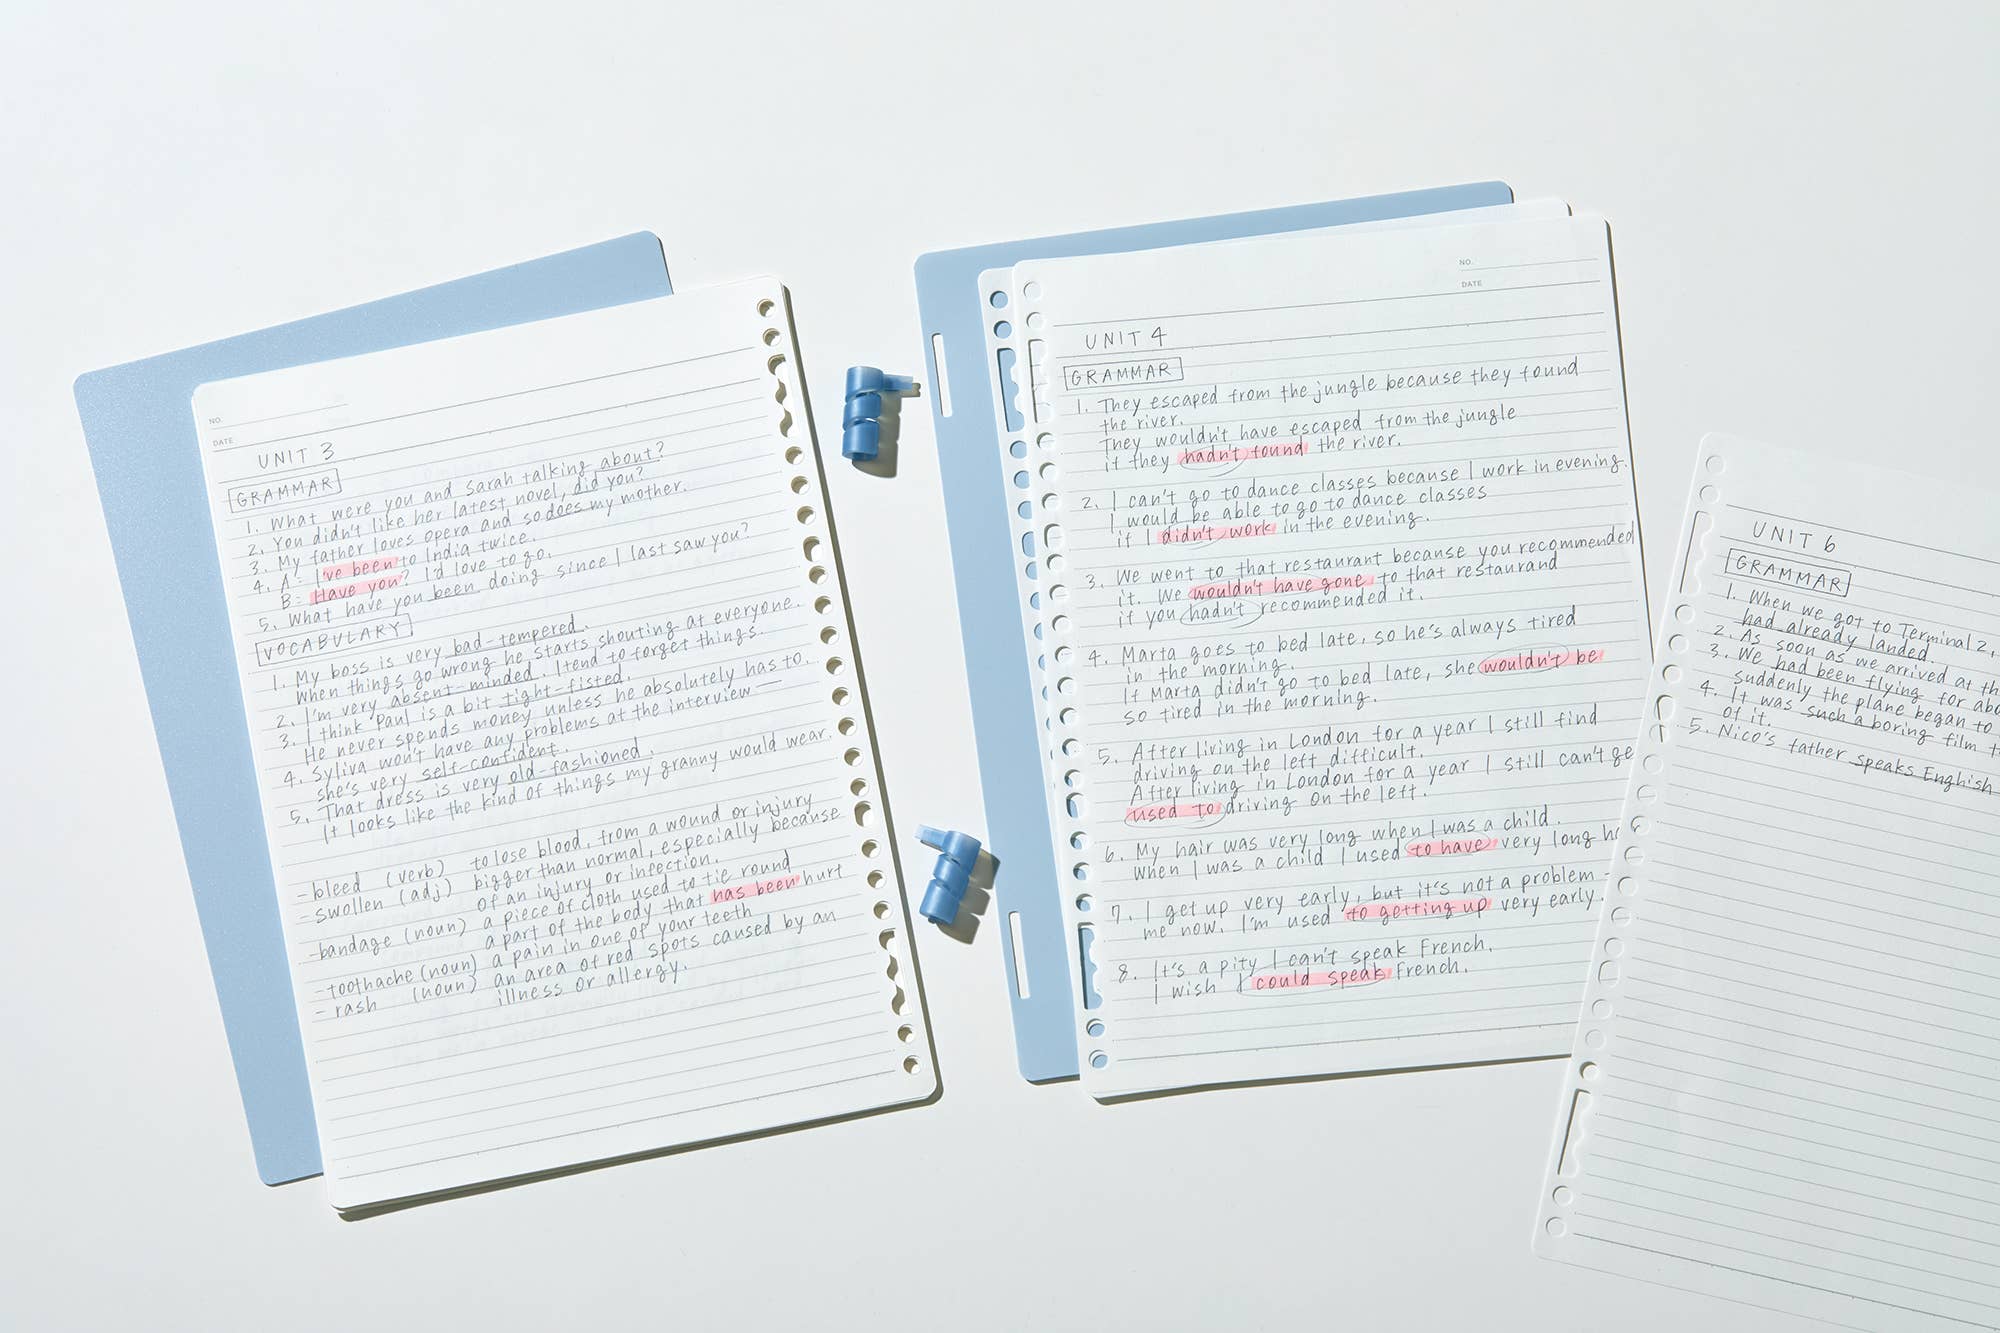 NO.
DATE
UNIT 3
GRAMMAR
1. What were you and Sarah talking about?
2. You didn't like her latest novel, did you?
3. My father loves opera and so does my mother.
4. A: I've been to India twice.
B: Have you? I'd love to go.
5. What have you been doing since I last saw you?
VOCABULARY
1. My boss is very bad-tempered.
When things go wrong he starts shouting at everyone.
2. I'm very absent-minded. I tend to forget things.
3. I think Paul is a bit tight-fisted.
He never spends money unless he absolutely has to.
4. Syliva won't have any problems at the interview —
she's very self-confident.
5. That dress is very old-fashioned.
It looks like the kind of things my granny would wear.
- bleed (verb) to lose blood, from a wound or injury
- swollen (adj) bigger than normal, especially because
of an injury or infection.
- bandage (noun) a piece of cloth used to tie round
a part of the body that has been hurt
- toothache (noun) a pain in one of your teeth
- rash (noun) an area of red spots caused by an
illness or allergy.
NO.
DATE
UNIT 4
GRAMMAR
1. They escaped from the jungle because they found
the river.
They wouldn't have escaped from the jungle
if they hadn't found the river.
2. I can't go to dance classes because I work in evening.
I would be able to go to dance classes
if I didn't work in the evening.
3. We went to that restaurant because you recommended
it. We wouldn't have gone to that restaurand
if you hadn't recommended it.
4. Marta goes to bed late, so he's always tired
in the morning.
If Marta didn't go to bed late, she wouldn't be
so tired in the morning.
5. After living in London for a year I still find
driving on the left difficult.
After living in London for a year I still can't ge
used to driving on the left.
6. My hair was very long when I was a child.
When I was a child I used to have very long ha
7. I get up very early, but it's not a problem -
me now. I'm used to getting up very early.
8. It's a pity I can't speak French.
I wish I could speak French.
UNIT 6
GRAMMAR
1. When we got to Terminal 2,
had already landed.
2. As soon as we arrived at th
3. We had been flying for abo
suddenly the plane began to
4. It was such a boring film t
of it.
5. Nico's father speaks Enghish